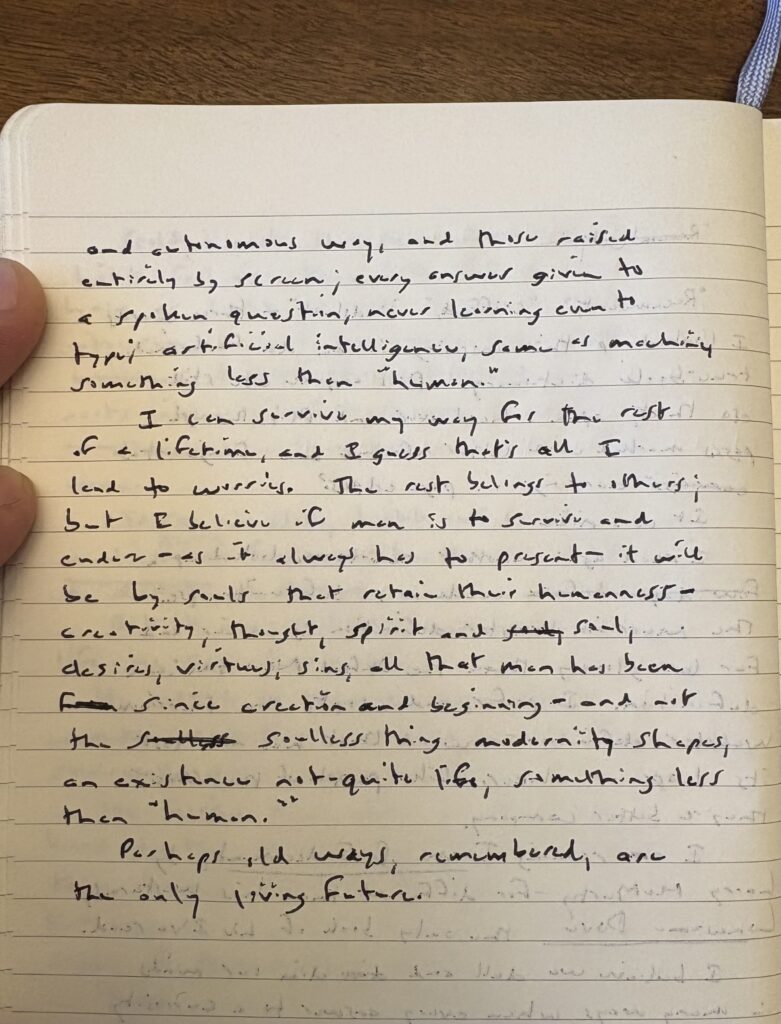 and autonomous way, and those raised
entirely by screen; every answer given to
a spoken question, never learning even to
type; artificial intelligence, same as machine,
something less than "human."
I can survive my way for the rest
of a lifetime, and I guess that's all I
lend to worries. The rest belongs to others;
but I believe if man is to survive and
endure - as it always has to present - it will
be by souls that retain their humanness -
creativity, thought, spirit and soul,
desires, virtues, sins, all that man has been
since creation and beginning - and not
the soulless thing modernity shapes,
an existence not-quite life, something less
than "human."
Perhaps old ways, remembered, are
the only living future.